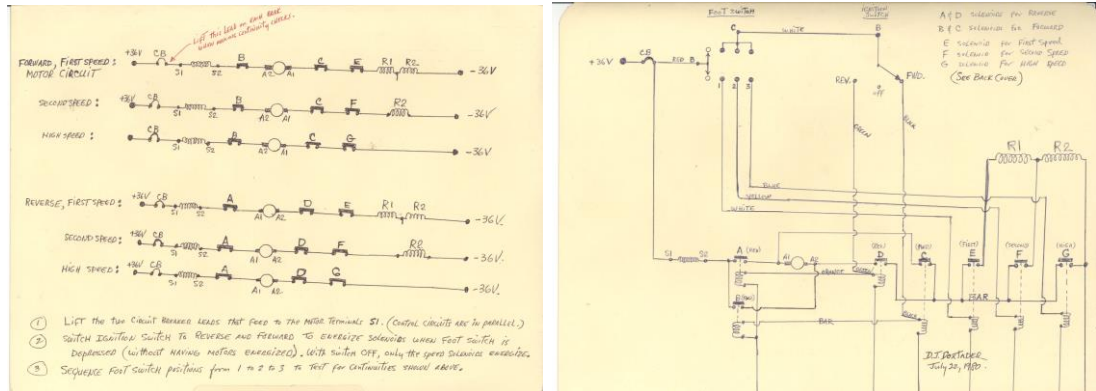 LIFT THIS LEAD ON EACH ONE
WHEN MAKING CONTINUITY CHECKS.
FORWARD, FIRST SPEED:
MOTOR CIRCUIT
+36V CB S1 S2 B A2 A1 C E R1 R2 -36V
SECOND SPEED:
+36V CB S1 S2 B A2 A1 C F R2 -36V
HIGH SPEED:
+36V CB S1 S2 B A2 A1 C G -36V
REVERSE, FIRST SPEED:
+36V CB S1 S2 A A1 A2 D E R1 R2 -36V.
SECOND SPEED:
+36V CB S1 S2 A A1 A2 D F R2 -36V.
HIGH SPEED:
+36V CB S1 S2 A A1 A2 D G -36V.
1 LIFT THE TWO CIRCUIT BREAKER LEADS THAT FEED TO THE MOTOR TERMINALS S1. (CONTROL CIRCUITS ARE IN PARALLEL.)
2 SWITCH IGNITION SWITCH TO REVERSE AND FORWARD TO ENERGIZE SOLENOIDS WHEN FOOT SWITCH IS
DEPRESSED (WITHOUT HAVING MOTORS ENERGIZED). WITH SWITCH OFF, ONLY THE SPEED SOLENOIDS ENERGIZE.
3 SEQUENCE FOOT SWITCH POSITIONS FROM 1 TO 2 TO 3 TO TEST FOR CONTINUITIES SHOWN ABOVE.
FOOT SWITCH
IGNITION
SWITCH
A & D SOLENOIDS FOR REVERSE
B & C SOLENOIDS FOR FORWARD
E SOLENOID FOR FIRST SPEED
F SOLENOID FOR SECOND SPEED
G SOLENOID FOR HIGH SPEED
(SEE BACK COVER)
C WHITE B
+36V CB RED B
REV. OFF FWD.
1 2 3
GREEN
R1 R2
BLUE
YELLOW
WHITE
S1 S2 A (REV) A1 A2 D (REV) C (FWD) E (FIRST) F (SECOND) G (HIGH)
ORANGE
BAR
BAR
D.J. PORTADER
July 22, 1980.